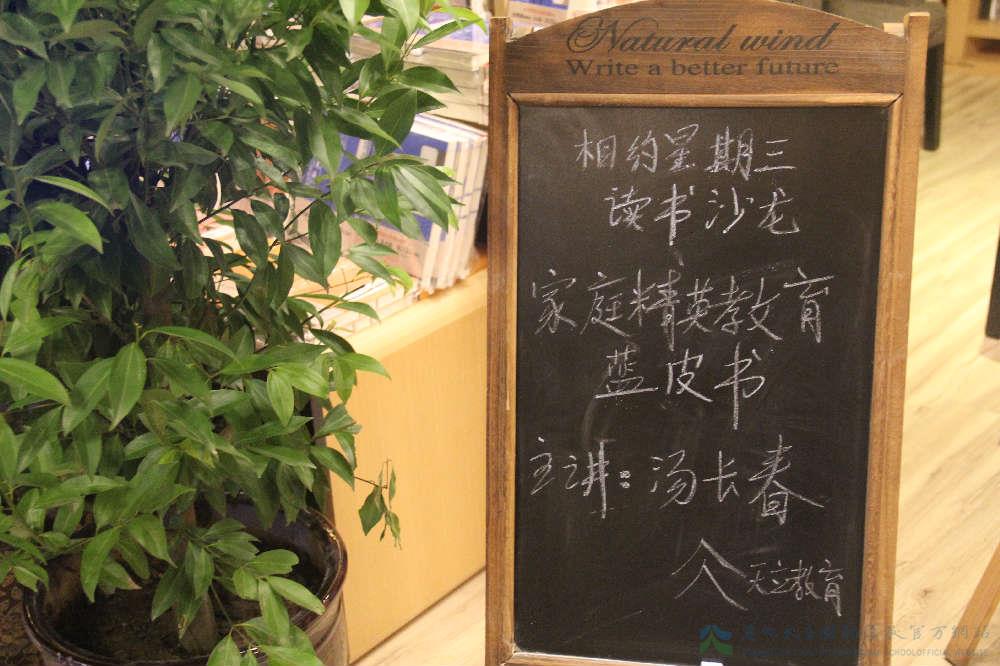 Natural wind
Write a better future
相约星期三
读书沙龙
家庭精英教育
蓝皮书
主讲:汤长春
天立教育